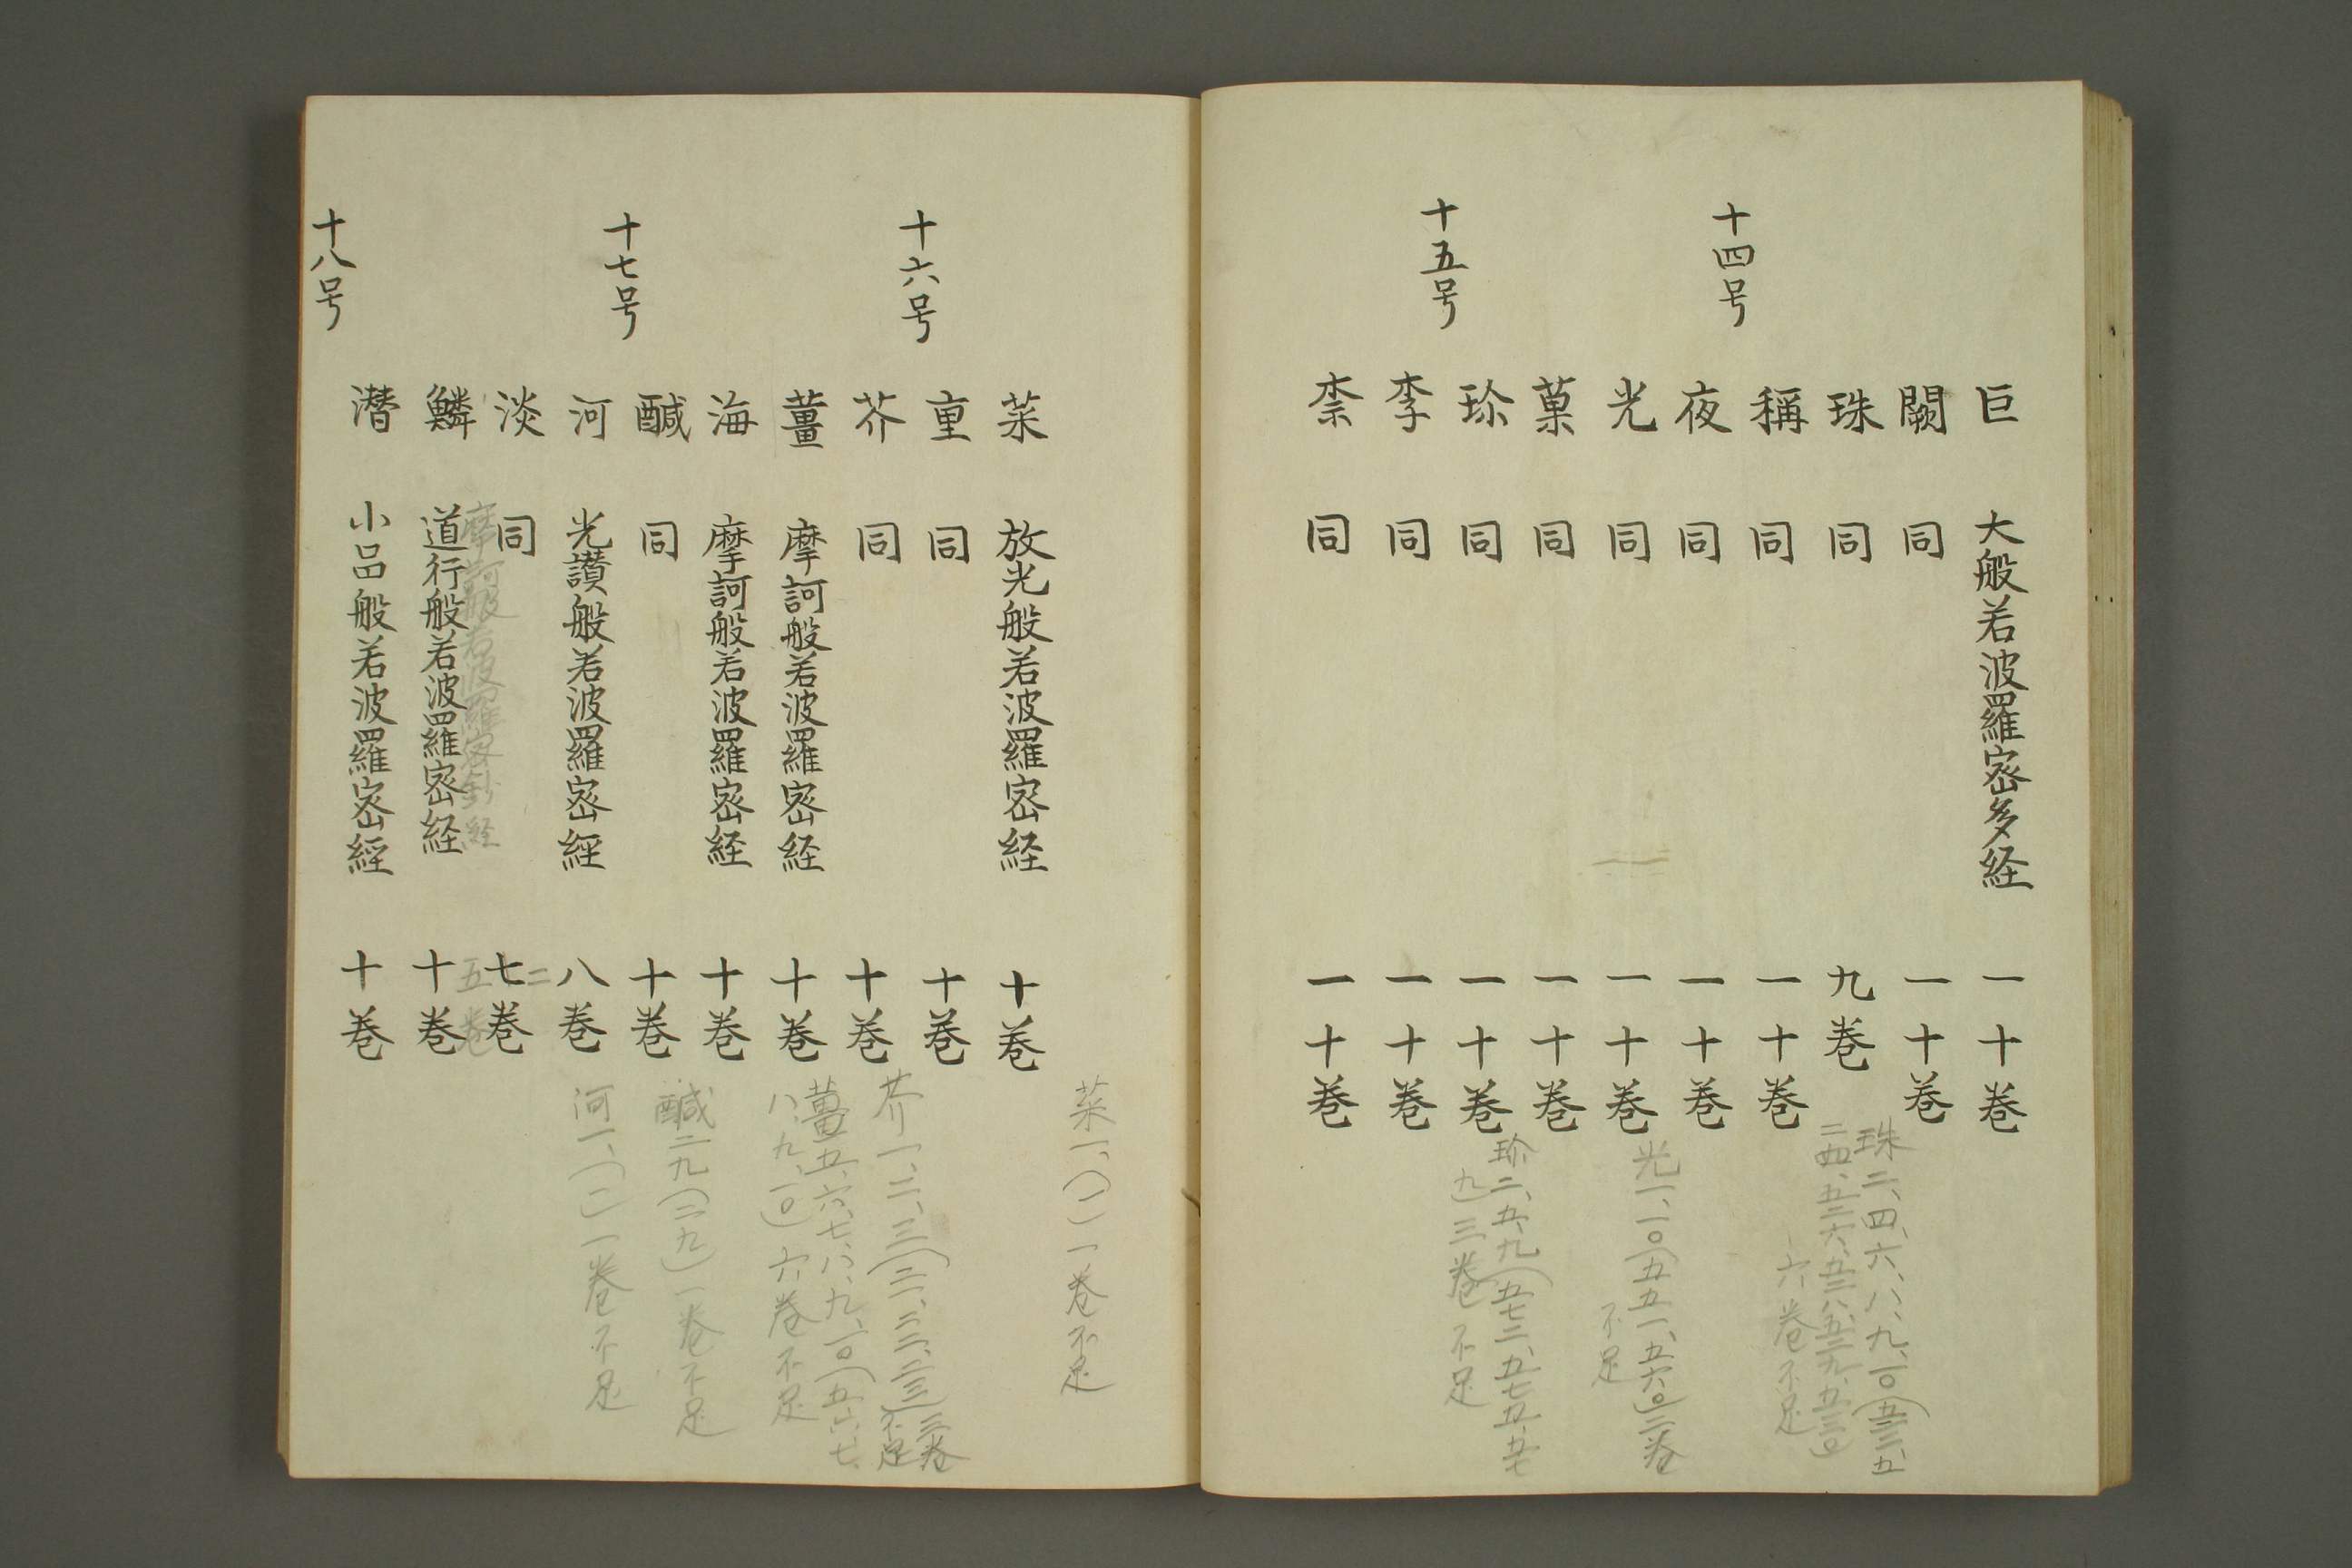 巨 大般若波羅密多経 一十巻
闕 同 一十巻
珠 同 九巻
珠二、四、六、八、九、一〇(五二二、五
二四、五二六、五二八、五二九、五三〇)
六巻不足
稱 同 一十巻
十四号
夜 同 一十巻
光 同 一十巻
光一、一〇(五五一、五六〇)二巻
不足
菓 同 一十巻
珍 同 一十巻
珍二、五、九(五七二、五七五、五七
九)三巻不足
十五号
李 同 一十巻
柰 同 一十巻
菜 放光般若波羅密経 十巻
菜一、(一)一巻不足
重 同 十巻
十六号
芥 同 十巻
芥一、二、三(二一、二二、二三)三巻
不足
薑 摩訶般若波羅密経 十巻
薑五、六、七、八、九、一〇(五、六、七、
八、九、一〇)六巻不足
海 摩訶般若波羅密経 十巻
醎 同 十巻
醎二九(二九)一巻不足
十七号
河 光讃般若波羅密經 八巻
河一、(一)一巻不足
淡 同 二七巻
摩訶般若波羅密鈔経 五巻
鱗 道行般若波羅密経 十巻
潜 小品般若波羅密經 十巻
十八号